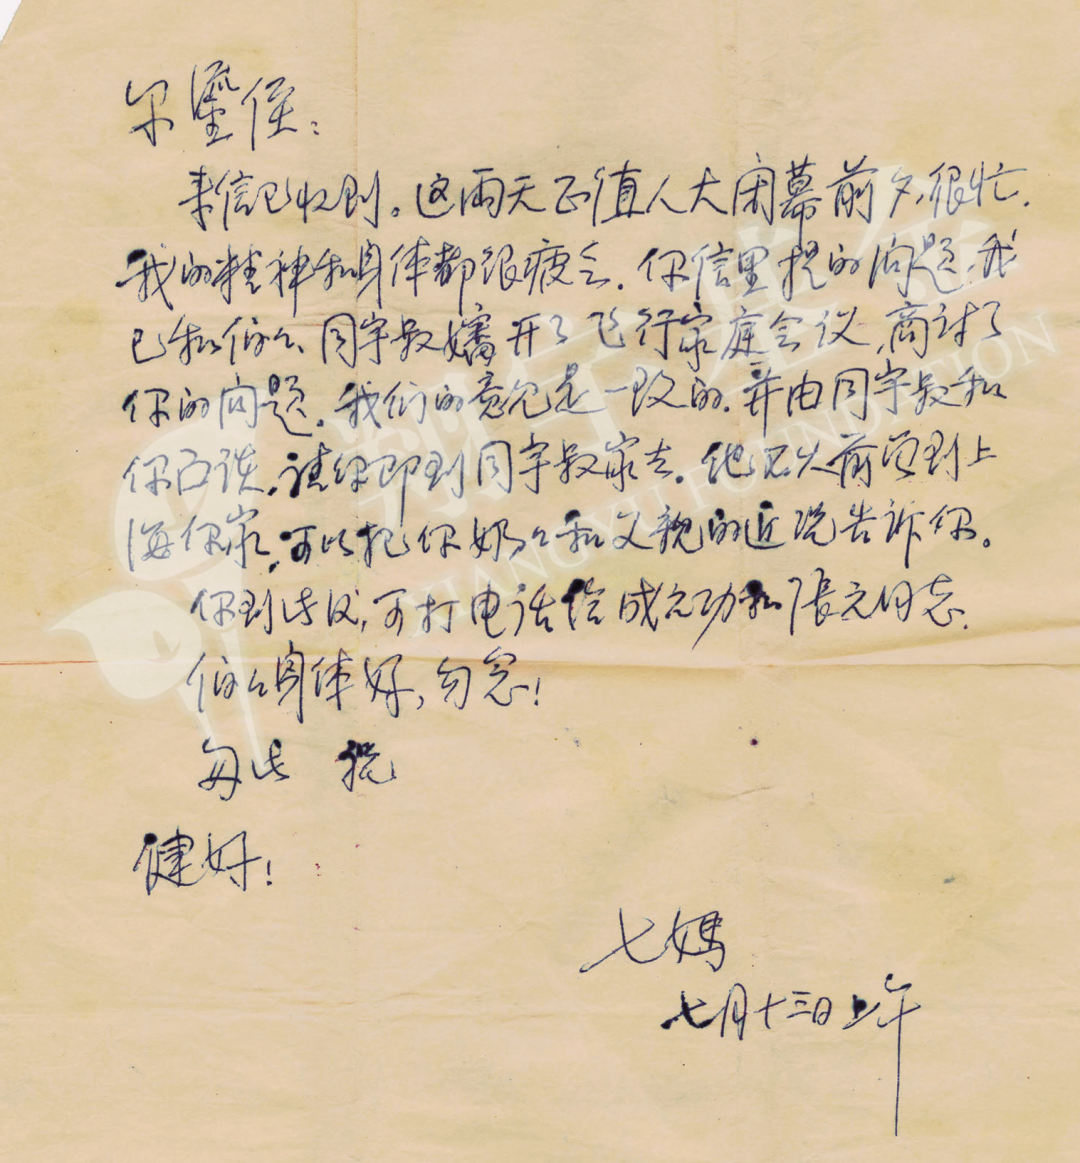 尔鎏侄:
来信已收到。这两天正值人大闭幕前夕,很忙.
我的精神和身体都很疲乏.你信里提的问题,我
已和伯伯、同宇叔婶开了飞行家庭会议,商讨了
你的问题.我们的意见是一致的.并由同宇叔和
你面谈.请你即到同宇叔家去.他不久前曾到上
海你家,可以把你奶奶和父亲的近况告诉你。
你到此后,可打电话给成元功和张元同志.
伯伯身体好,勿念!
匆此 祝
健好!
七妈
七月十三日上午
翔宇基金
XIANGYU FOUNDATION